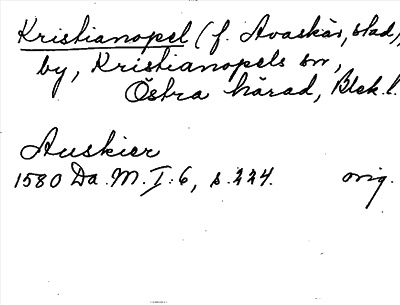 Kristianopel (f. Avaskär, stad),
by, Kristianopels sn,
Östra härad, Blek. l.
Auskier
1580 Da. M. I:6, s. 224. orig.